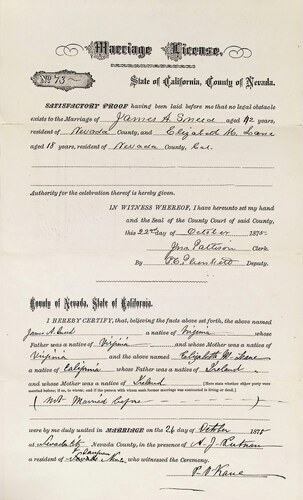 Marriage License.
No. 75
State of California, County of Nevada.
SATISFACTORY PROOF having been laid before me that no legal obstacle
exists to the Marriage of James A. aged 42 years,
resident of Nevada County, and Elizabeth M. Kane
aged 18 years, resident of Nevada County, Cal.
Authority for the celebration thereof is hereby given.
IN WITNESS WHEREOF, I have hereunto set my hand
and the Seal of the County Court of said County,
this 22nd day of October 1875
Jno. Pattison Clerk.
By Deputy.
County of Nevada, State of California.
I HEREBY CERTIFY, that, believing the facts above set forth, the above named
James A. a native of Virginia whose
Father was a native of Virginia and whose Mother was a native of
Virginia and the above named Elizabeth M. Kane
a native of California whose Father was a native of Ireland
and whose Mother was a native of Ireland
(Not Married before)
were by me duly united in MARRIAGE on the 24 day of October 1875
at Nevada City Nevada County, in the presence of A. J.
a resident of who witnessed the Ceremony.
P. O'Kane